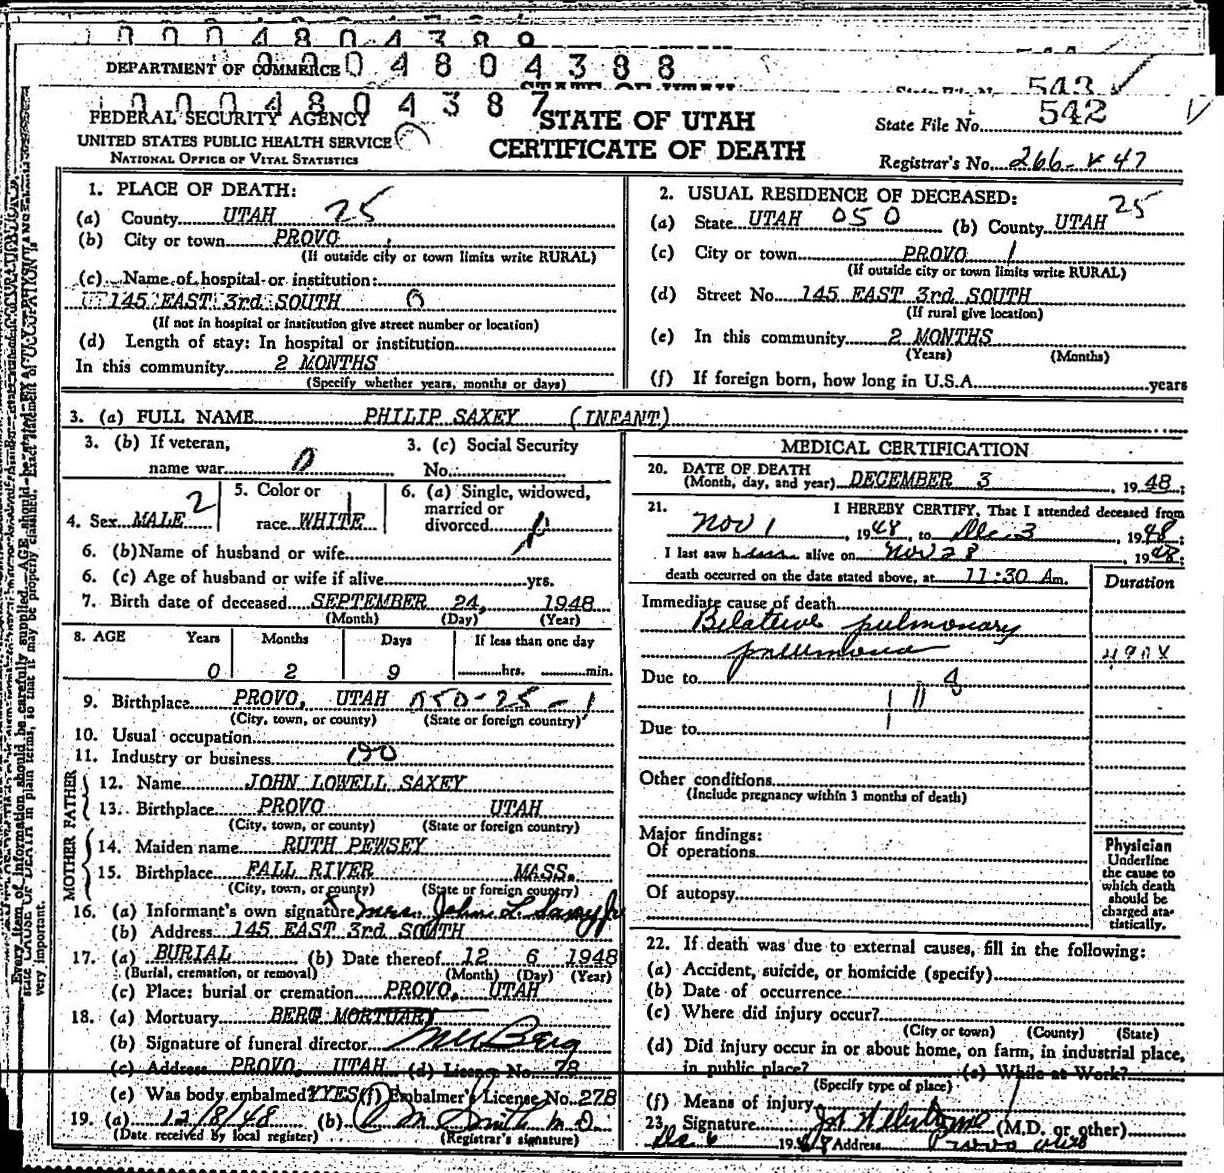 10004804389
DEPARTMENT OF COMMERCE 0004804388
STATE OF UTAH State File No. 543
10004804387
FEDERAL SECURITY AGENCY
UNITED STATES PUBLIC HEALTH SERVICE
NATIONAL OFFICE OF VITAL STATISTICS
STATE OF UTAH
CERTIFICATE OF DEATH
State File No. 542
Registrar's No. 266-V 47
1. PLACE OF DEATH:
(a) County UTAH 25
(b) City or town PROVO
(If outside city or town limits write RURAL)
(c) Name of hospital or institution:
145 EAST 3rd SOUTH 0
(If not in hospital or institution give street number or location)
(d) Length of stay: In hospital or institution
In this community 2 MONTHS
(Specify whether years, months or days)
2. USUAL RESIDENCE OF DECEASED:
(a) State UTAH 050 (b) County UTAH 25
(c) City or town PROVO 1
(If outside city or town limits write RURAL)
(d) Street No. 145 EAST 3rd SOUTH
(If rural give location)
(e) In this community 2 MONTHS
(Years) (Months)
(f) If foreign born, how long in U.S.A. years
3. (a) FULL NAME PHILIP SAXEY (INFANT)
3. (b) If veteran,
name war 0
3. (c) Social Security
No.
4. Sex MALE 2
5. Color or
race WHITE 1
6. (a) Single, widowed,
married or
divorced
6. (b) Name of husband or wife
6. (c) Age of husband or wife if alive yrs.
7. Birth date of deceased SEPTEMBER 24, 1948
(Month) (Day) (Year)
8. AGE Years Months Days If less than one day
0 2 9 hrs. min.
9. Birthplace PROVO, UTAH 050-25-1
(City, town, or county) (State or foreign country)
10. Usual occupation
11. Industry or business
FATHER
12. Name JOHN LOWELL SAXEY
13. Birthplace PROVO UTAH
(City, town, or county) (State or foreign country)
MOTHER
14. Maiden name RUTH PEWSEY
15. Birthplace FALL RIVER MASS.
(City, town, or county) (State or foreign country)
16. (a) Informant's own signature x Mrs. John L. Saxey Jr
(b) Address 145 EAST 3rd SOUTH
17. (a) BURIAL (b) Date thereof 12 6 1948
(Burial, cremation, or removal) (Month) (Day) (Year)
(c) Place: burial or cremation PROVO, UTAH
18. (a) Mortuary BERG MORTUARY
(b) Signature of funeral director Berg
(c) Address PROVO, UTAH (d) License No. 78
(e) Was body embalmed? YES (f) Embalmer's License No. 278
19. (a) 12/8/48 (b) M Smith M.D.
(Date received by local register) (Registrar's signature)
MEDICAL CERTIFICATION
20. DATE OF DEATH
(Month, day, and year) DECEMBER 3, 1948;
21. I HEREBY CERTIFY, That I attended deceased from
Nov 1, 1948, to Dec 3 1948;
I last saw him alive on Nov 28 1948;
death occurred on the date stated above, at 11:30 Am.
Duration
Immediate cause of death
Bilateral pulmonary
pneumonia 490X
Due to
Due to
Other conditions
(Include pregnancy within 3 months of death)
Major findings:
Of operations
Of autopsy
Physician
Underline
the cause to
which death
should be
charged sta-
tistically.
22. If death was due to external causes, fill in the following:
(a) Accident, suicide, or homicide (specify)
(b) Date of occurrence
(c) Where did injury occur?
(City or town) (County) (State)
(d) Did injury occur in or about home, on farm, in industrial place,
in public place? (e) While at Work?
(Specify type of place)
(f) Means of injury
23. Signature (M.D. or other)
Dec 6 1948 Address Provo Utah